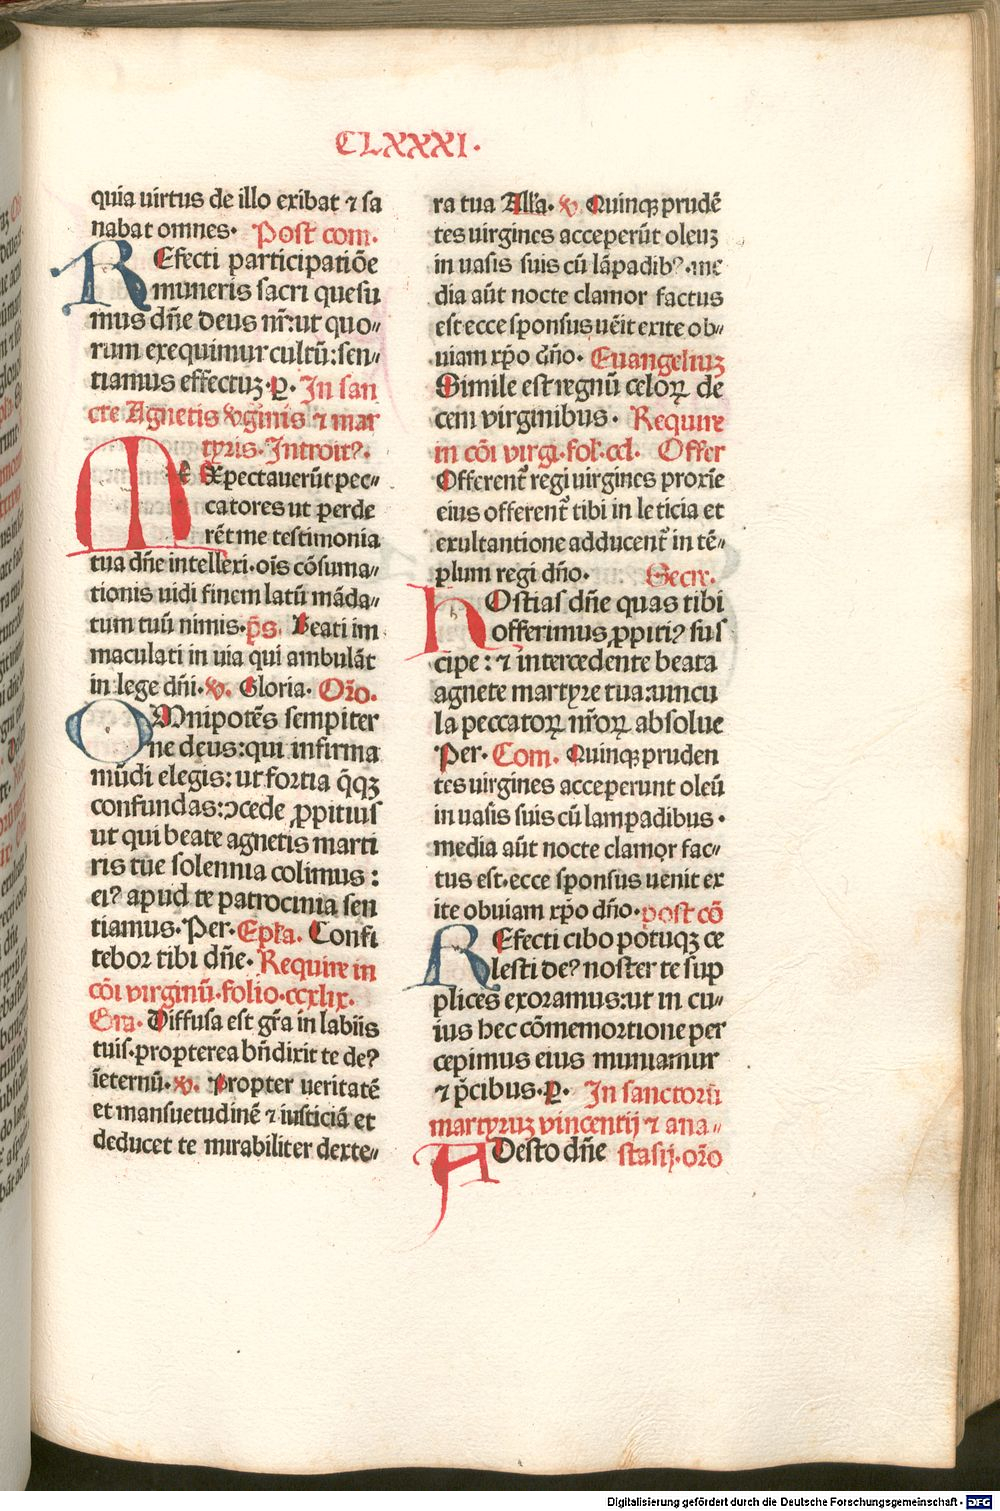 CLXXXI.
quia uirtus de illo exibat ⁊ sa
nabat omnes. Post com.
REfecti participatiōe
muneris sacri quesu
mus dn̄e deus nr̄:ut quo⸗
rum exequimur cultū:sen⸗
tiamus effectuꝫ.P̱. In san
cte Agnetis v̓ginis ⁊ mar
tyris. Introitꝰ.
ME Expectauerūt pec⸗
catores ut perde
rēt me testimonia
tua dn̄e intellexi.oīs cōsuma⸗
tionis uidi finem latū māda⸗
tum tuū nimis.p̄s. Beati im
maculati in uia qui ambulāt
in lege dn̄i.v. Gloria. Orō.
OMnipotēs sempiter
ne deus:qui infirma
mūdi elegis:ut fortia q̄qꝫ
confundas:ↄcede ꝓpitius
ut qui beate agnetis marti
ris tue solennia colimus:
eiꝰ apud te patrocinia sen
tiamus.Per.Ep̄la. Confi
tebor tibi dn̄e. Require in
cōi virginū.folio.ccxlix.
Gra. Diffusa est gr̄a in labiis
tuis.propterea bn̄dixit te deꝰ
īeternū.v. Propter ueritatē
et mansuetudinē ⁊ iusticiā et
deducet te mirabiliter dexte⸗
ra tua All̄a. v. Quinqꝫ prudē
tes uirgines acceperūt oleuꝫ
in uasis suis cū lāpadibꝰ.me
dia aūt nocte clamor factus
est ecce sponsus uēit exite ob⸗
uiam xp̄o dn̄o. Euangeliuꝫ
Simile est regnū celoꝝ de
cem virginibus. Require
in cōi virgi.fol.ccl. Offer
Offerent̄ regi uirgines proxīe
eius offerent̄ tibi in leticia et
exultantione adducent̄ in tē⸗
plum regi dn̄o. Secre.
HOstias dn̄e quas tibi
offerimus ꝓpitiꝰ sus
cipe: ⁊ intercedente beata
agnete martyre tua:uincu
la peccatoꝝ nr̄oꝝ absolue
Per. Com. Quinqꝫ pruden
tes uirgines acceperunt oleū
in uasis suis cū lampadibus.
media aūt nocte clamor fac⸗
tus est.ecce sponsus uenit ex
ite obuiam xp̄o dn̄o.post cō
REfecti cibo potuqꝫ ce
lesti deꝰ noster te sup
plices exoramus:ut in cu⸗
ius hec cōmemortione per
cepimus eius muniamur
⁊ p̄cibus.P̱. In sanctorū
martyruꝫ vincentij ⁊ ana⸗
ADesto dn̄e stasij.orō
Digitalisierung gefördert durch die Deutsche Forschungsgemeinschaft - DFG